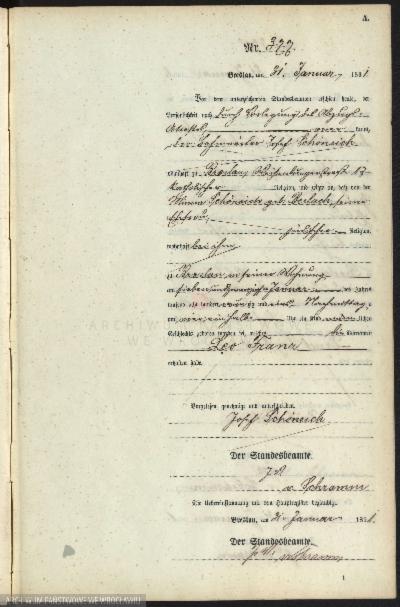 A.
Nr. 377.
Breslau, am 31. Januar 1881
Vor dem unterzeichneten Standesbeamten erschien heute, der
Persönlichkeit nach durch Vorlegung des Abzugs-
Attestes
kannt,
der Josef Schöneich
wohnhaft zu Breslau,
katholischer Religion, und zeigte an, daß von der
Schöneich geb. seiner
Ehefrau,
jüdischer Religion,
wohnhaft bei ihm
zu Breslau in seiner Wohnung
am sieben und zwanzigsten Januar des Jahres
tausend acht hundert achtzig und eins Nachmittags
um vier einhalb Uhr ein Kind männlichen
Geschlechts geboren worden sei, welches die Vornamen
Leo Franz
erhalten habe.
Vorgelesen, genehmigt und unterschrieben
Josef Schöneich
Der Standesbeamte.
J.V.
v. Schramm
Die Uebereinstimmung mit dem Hauptregister beglaubigt
Breslau, am 31. Januar 1881.
Der Standesbeamte.
J.V. v. Schramm
1
ARCHIWUM PAŃSTWOWE WE WROCŁAWIU